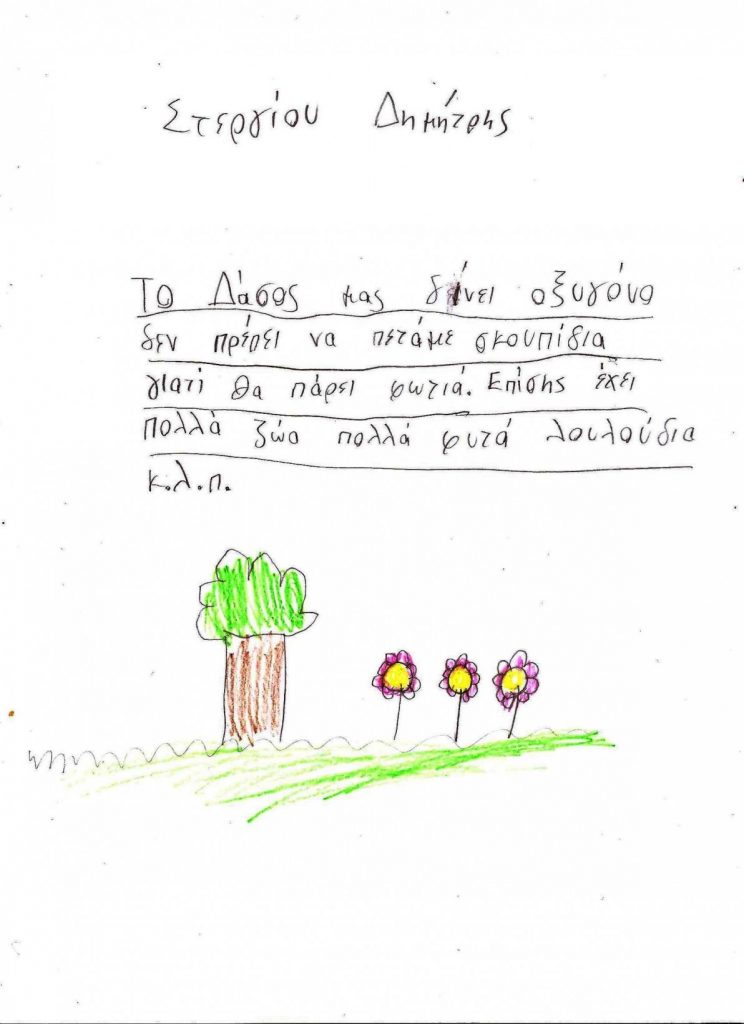 Στεργίου Δημήτρης
Το Δάσος μας δείνει οξυγόνο
δεν πρέπει να πετάμε σκουπίδια
γιατί θα πάρει φωτιά. Επίσης έχει
πολλά ζώα πολλά φυτά λουλούδια
κ.λ.π.